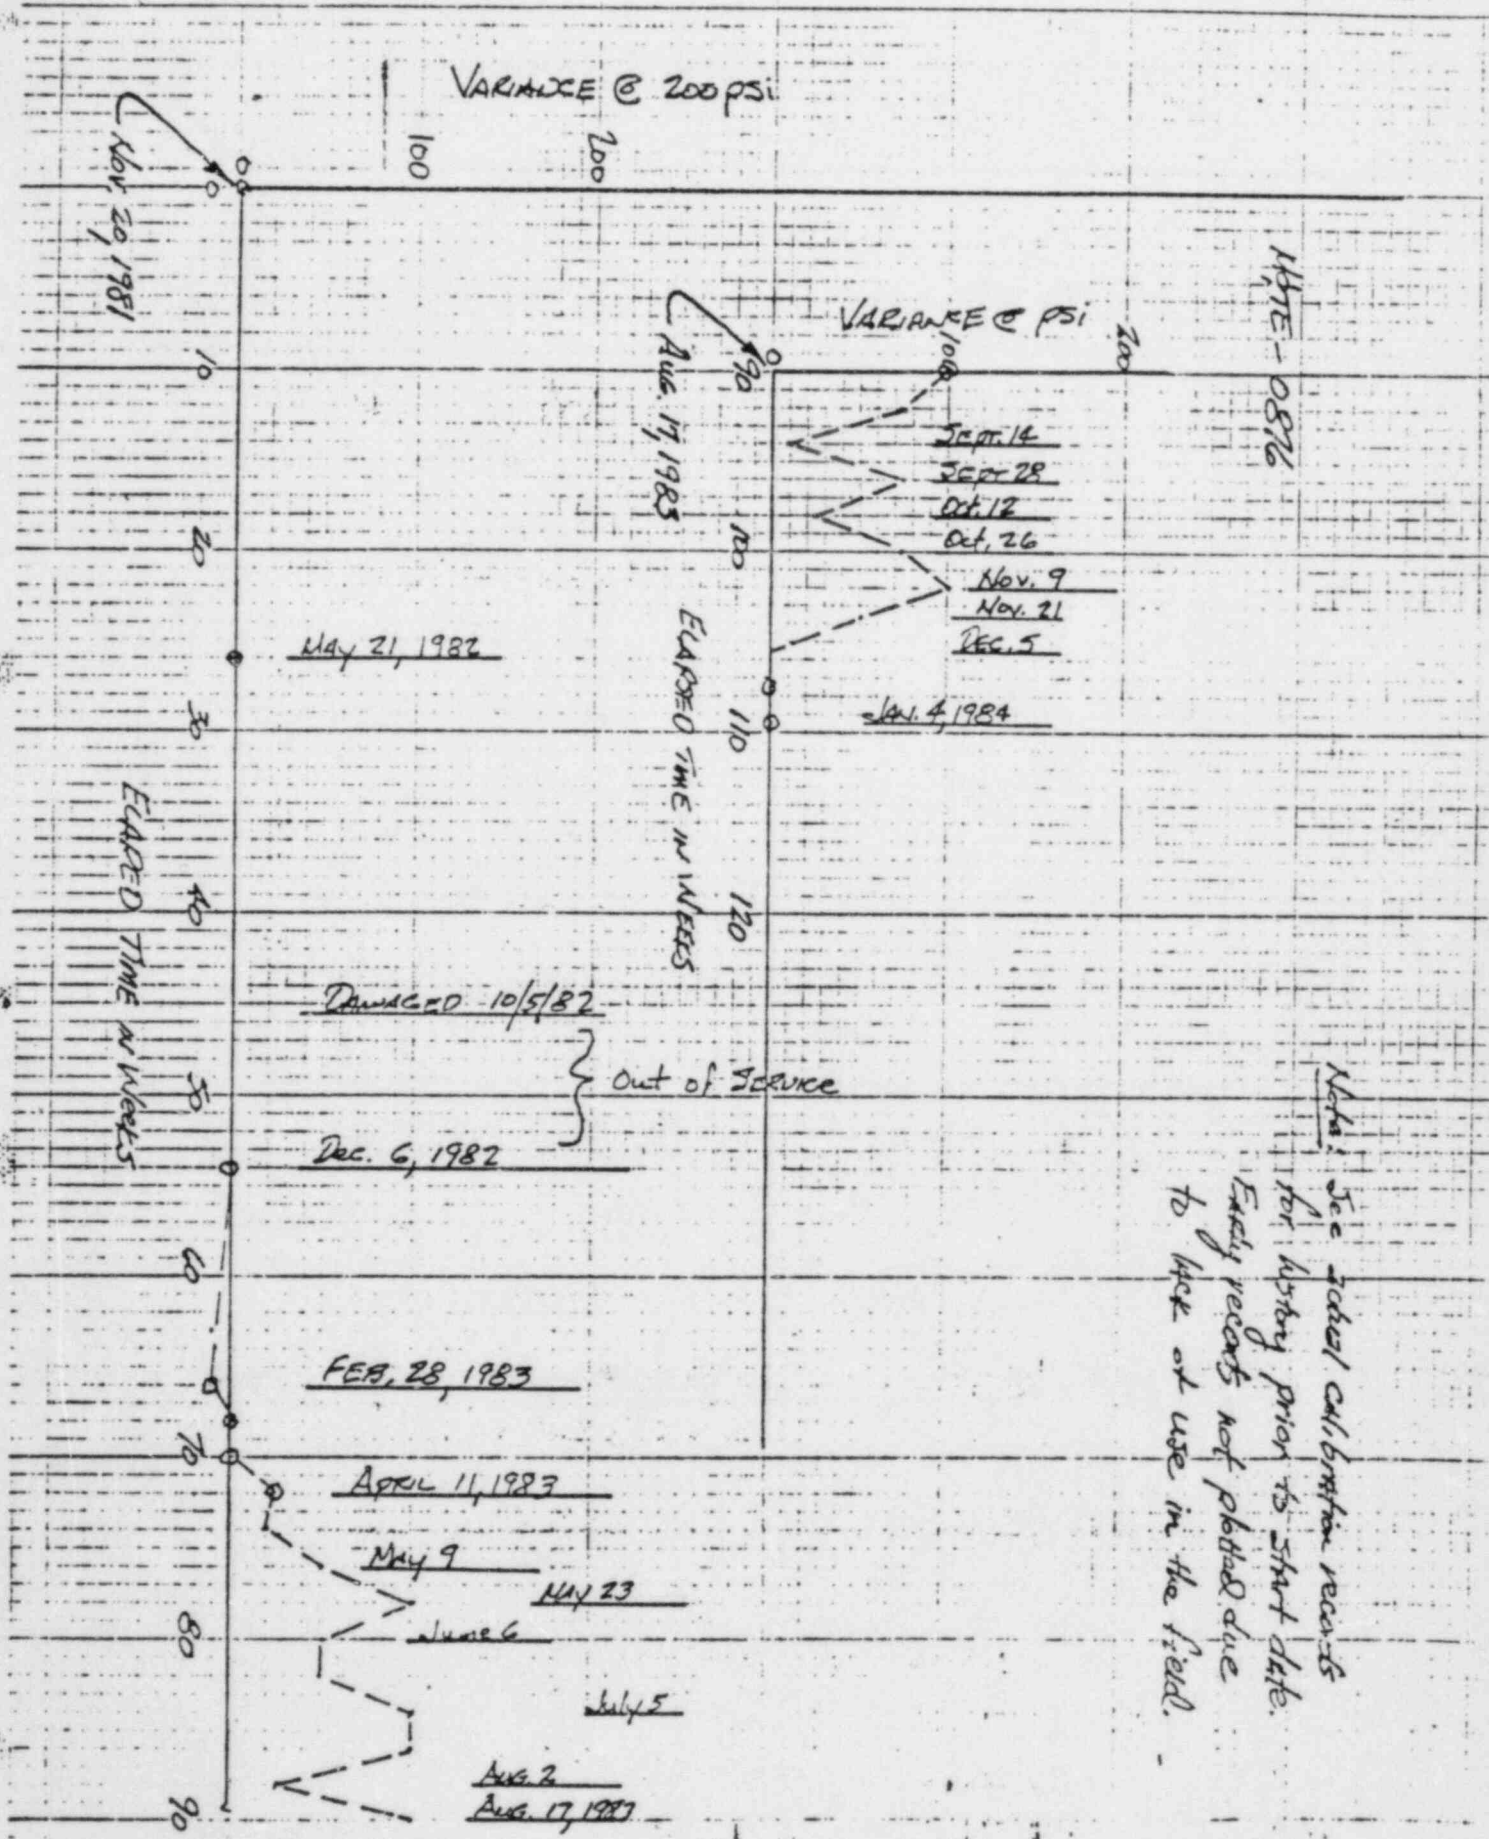 VARIANCE @ 200 psi
100
200
0
0
Nov. 20, 1981
10
20
30
40
50
60
70
80
90
ELAPED TIME IN WEEKS
May 21, 1982
DAMAGED 10/5/82
Out of SERVICE
Dec. 6, 1982
FEB. 28, 1983
APRIL 11, 1983
May 9
MAY 23
June 6
July 5
AUG. 2
AUG. 17, 1983
MOTE-0876
VARIANCE @ PSI
100
200
0
90
100
110
120
AUG. 17, 1983
ELAPSED TIME IN WEEKS
SEPT. 14
SEPT 28
Oct. 12
Oct. 26
Nov. 9
Nov. 21
DEC. 5
JAN. 4, 1984
Note: See calibration records
for history prior to start date.
Early records not plotted due
to lack of use in the field.